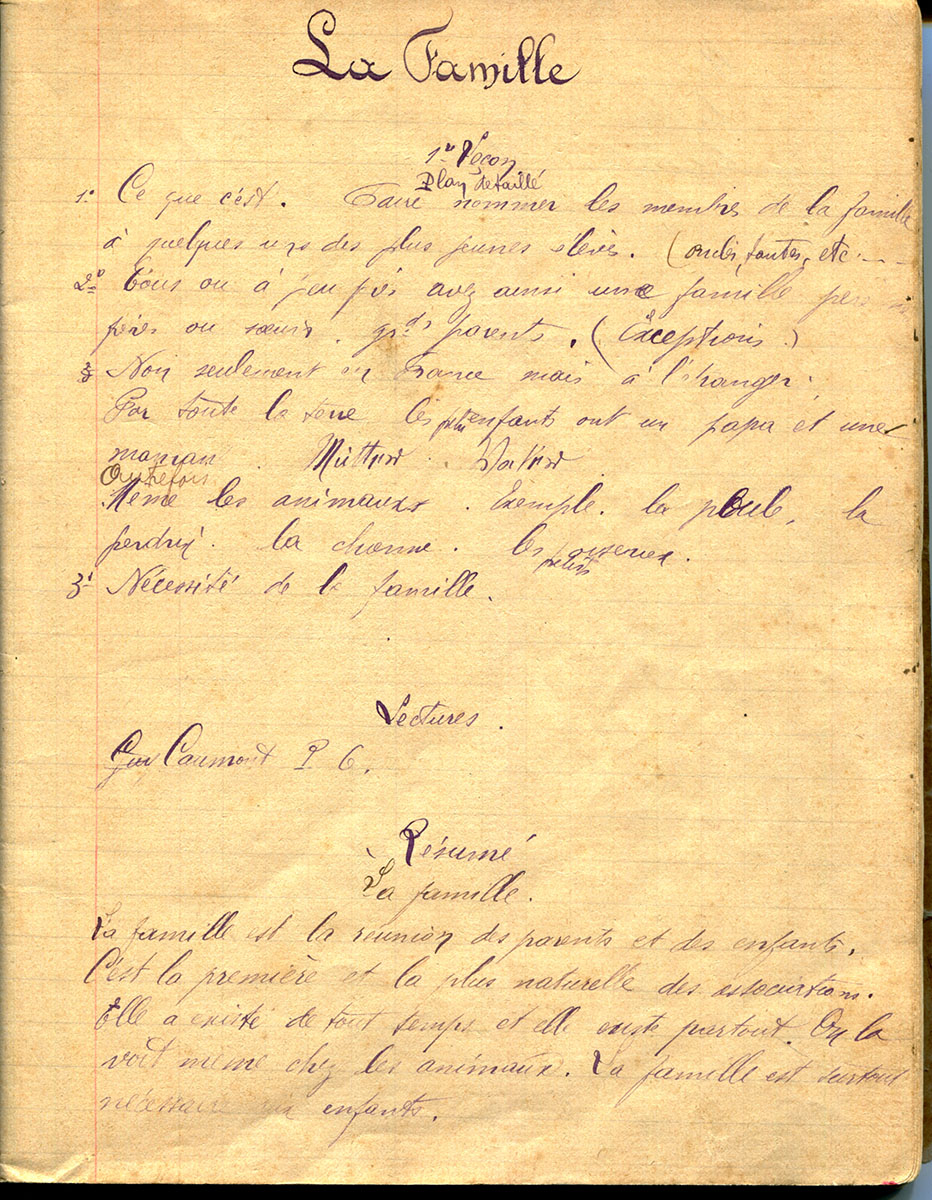 La Famille
1re Leçon
Plan detaillé
1° Ce que c'est. Faire nommer les membres de la famille
à quelques uns des plus jeunes élèves. (oncles, tantes, etc.
2° Tous ou à peu près avez ainsi une famille
frères ou sœurs, grds parents. (Exceptions.)
3° Non seulement en France mais à l'étranger.
Par toute la terre les petits enfants ont un papa et une
maman. Mutter. Vater
Autrefois
Même les animaux. Exemple. la poule, la
perdrix. la chienne. les oiseaux.
petits
3° Nécessité de la famille.
Lectures.
Guy Caumont P 6.
Résumé
La famille.
La famille est la reunion des parents et des enfants.
C'est la première et la plus naturelle des associations.
Elle a existé de tout temps et elle existe partout. On la
voit même chez les animaux. La famille est surtout
nécessaire aux enfants.